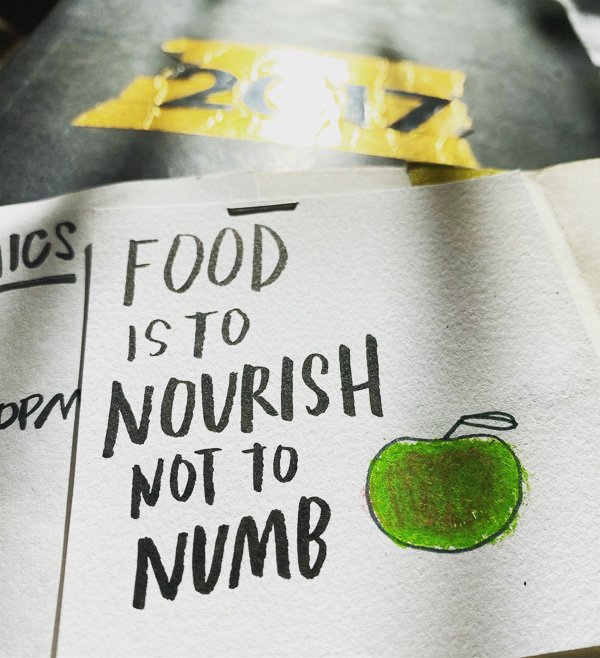 2017
FOOD
IS TO
NOURISH
NOT TO
NUMB